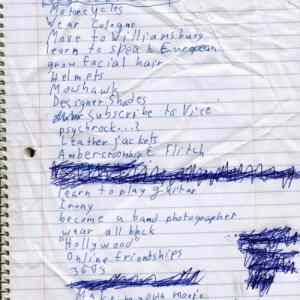 Motorcycles
Wear Cologne
Move to Williamsburg
learn to speak European
grow facial hair
Helmets
Mowhawk
Designer Shades
Subscribe to Vice
psychrock...?
Leather jackets
Ambercrombie & Flitch
learn to play guitar
Irony
become a band photographer
wear all black
Hollywood
Online friendships
Make my own movie